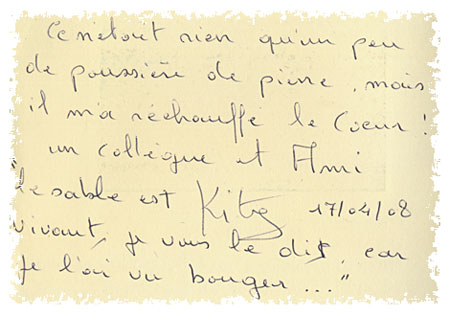 Ce n'etait rien qu'un peu
de poussière de pierre, mais
il m'a réchauffé le Coeur !
un collègue et Ami
"le sable est Kitg 17/04/08
vivant, je vous le dis, car
je l'ai vu bouger ..."